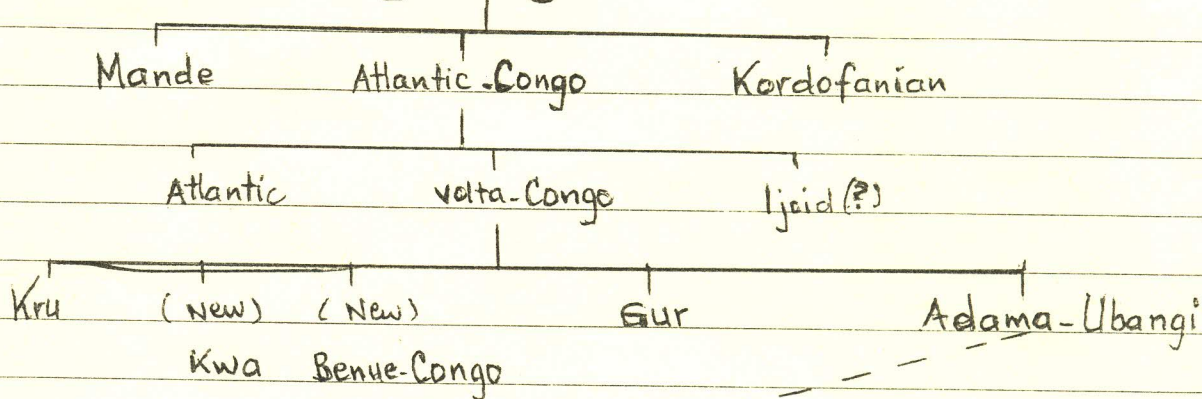 Mande Atlantic-Congo Kordofanian
Atlantic Volta-Congo Ijoid (?)
Kru (New) (New) Gur Adama-Ubangi
Kwa Benue-Congo